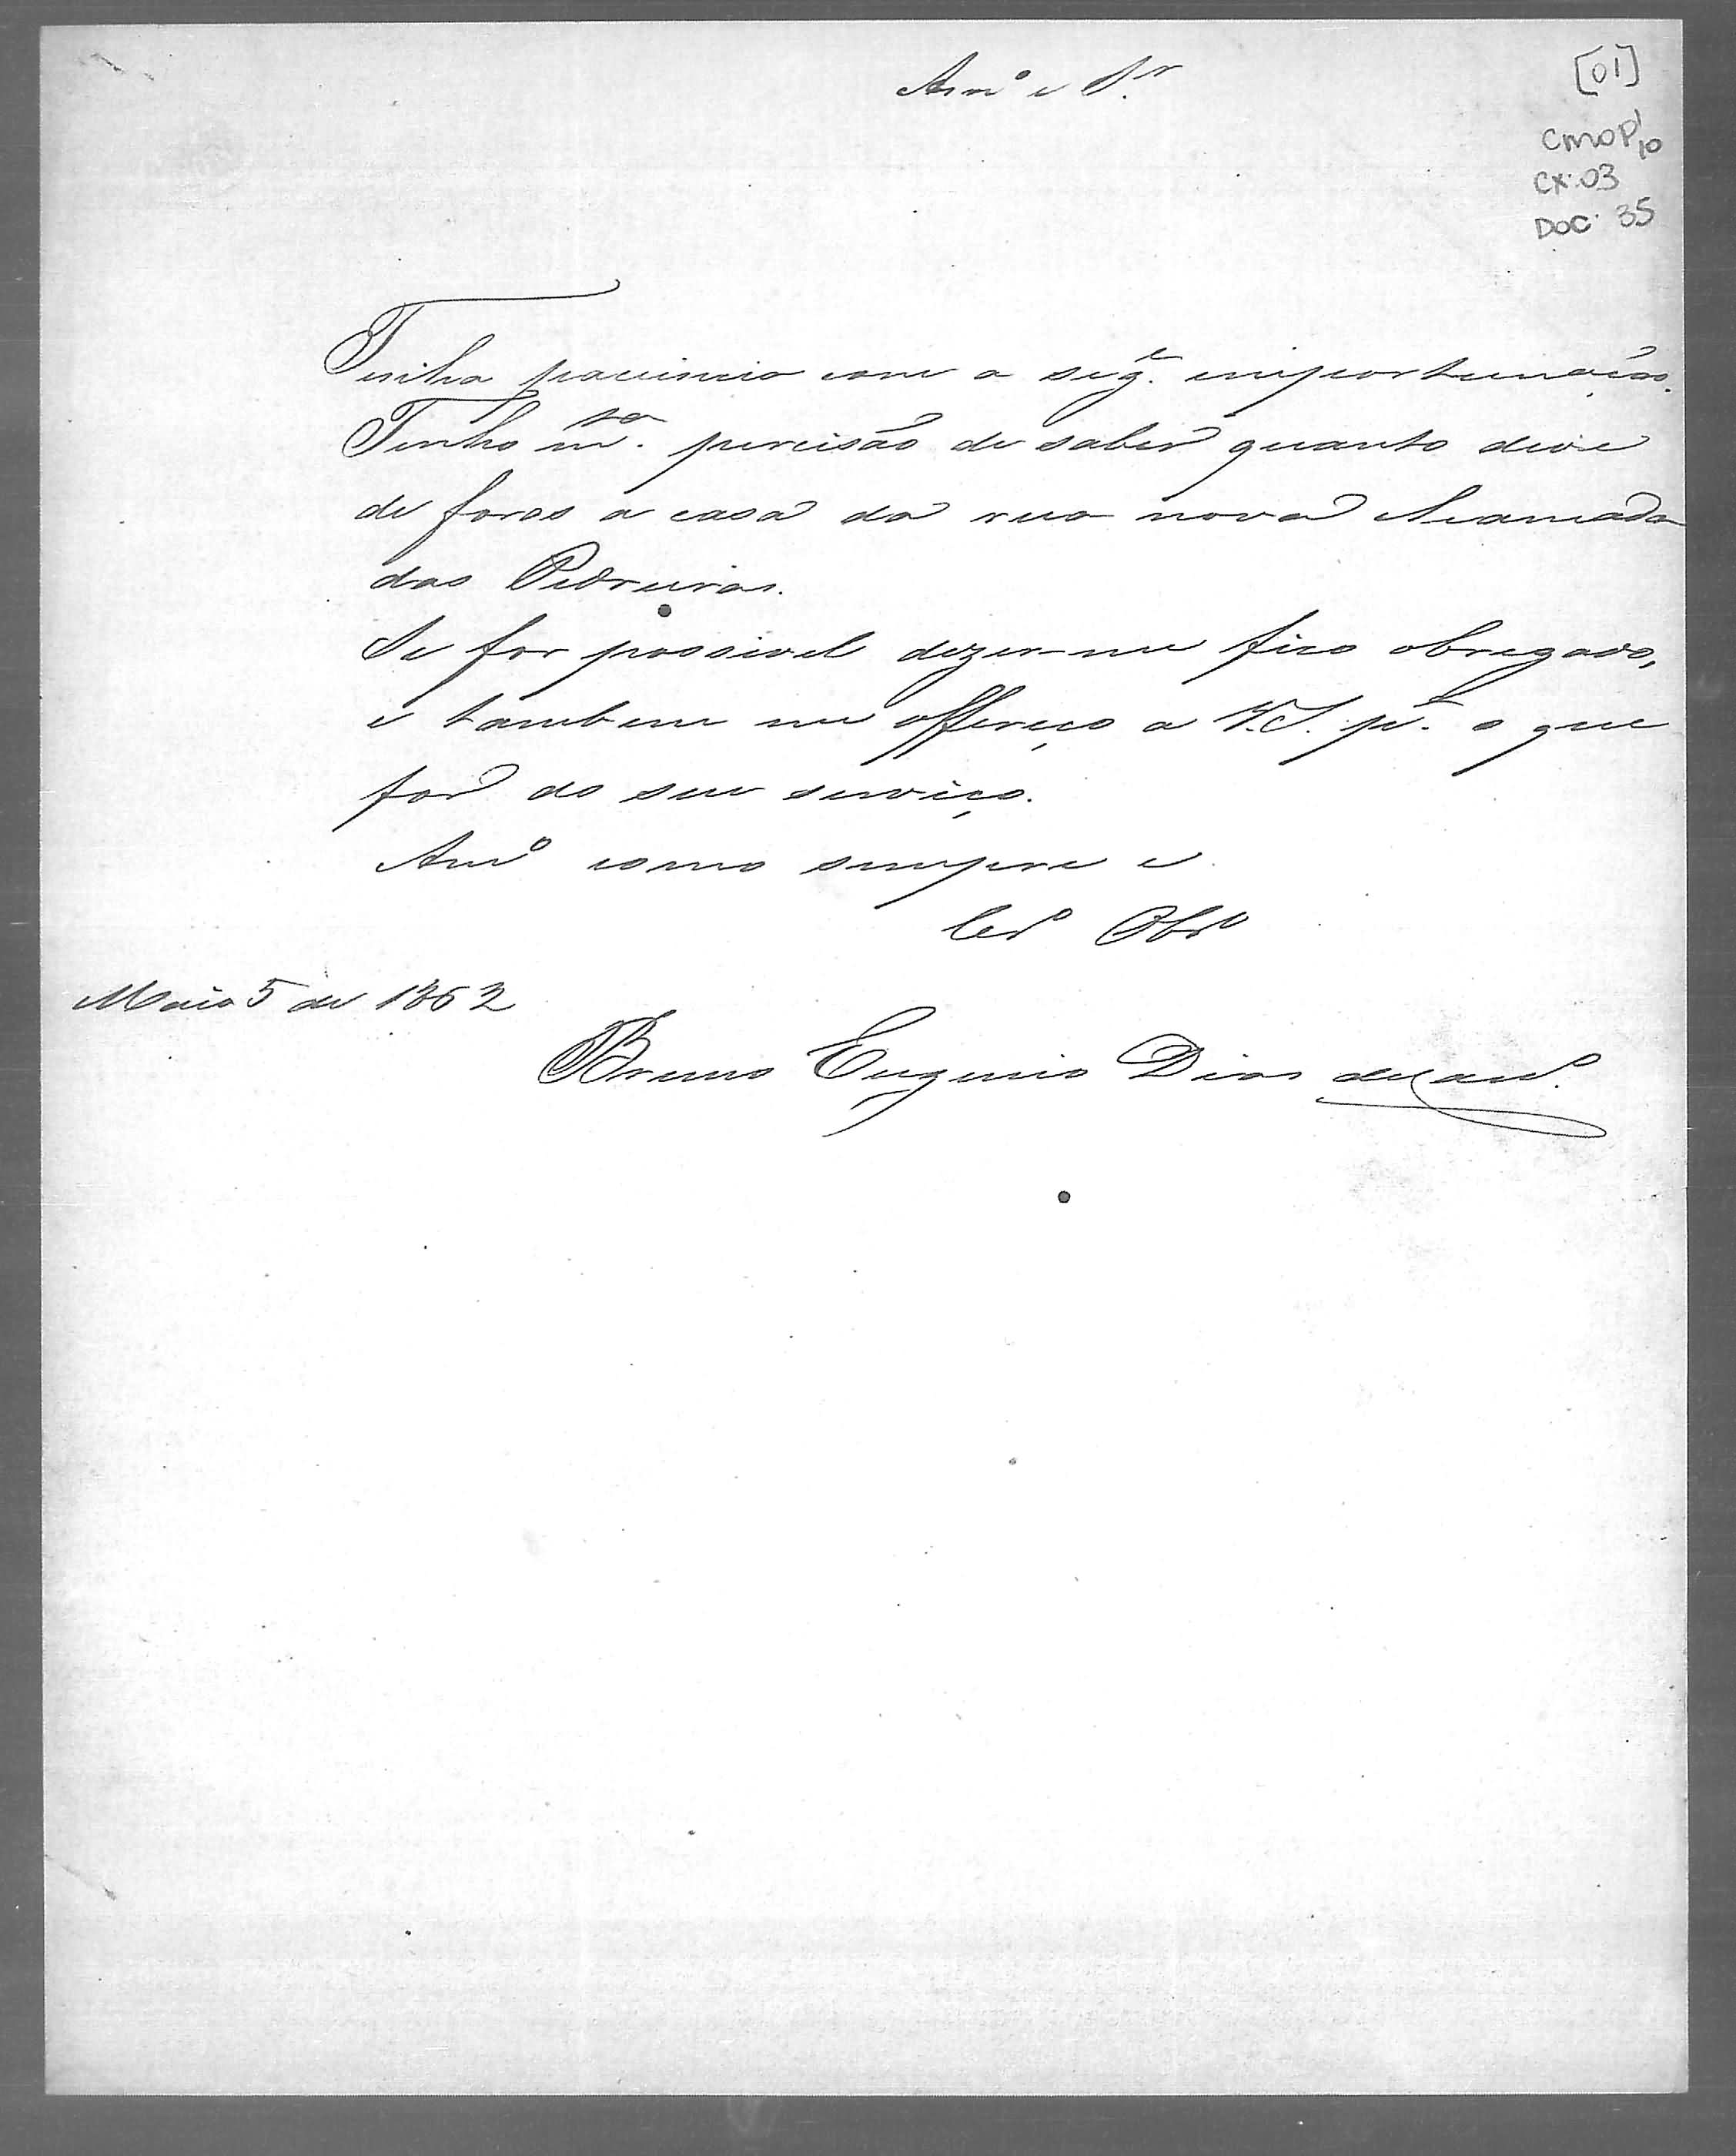 Amº e Sr.
[01]
CMOP 1/10
CX. 03
DOC. 35
Tenha paciencia com a segte. importunação.
Tenho mto. percisão de saber quanto deve
de foros a casa da rua nova chamada
das Pedreiras.
Se for possivel dizer-me fico obregado,
e tambem me offereço a V.S. pa. o que
for do seu serviço.
Amº como sempre e
Crº Obrº
Maio 5 de 1862
Bruno Eugenio Dias